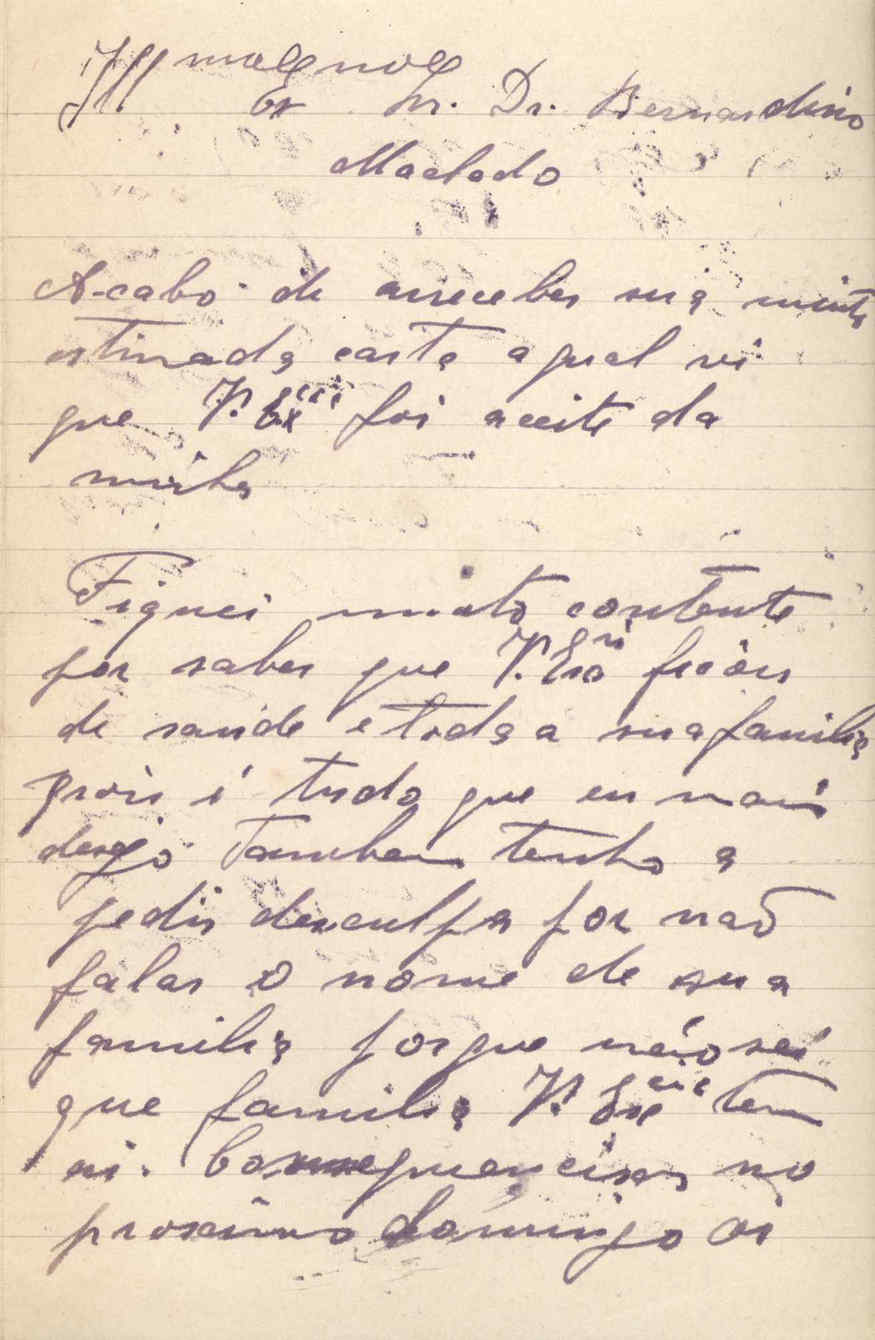 Illmo Exmo
Sr. Dr. Bernardino
Machado
Acabo de arreceber sua muito
estimada carta aqual vi
que V. Ex foi aceite da
minha
Fiquei muito contente
por saber que V. Exa ficáis
de saúde e toda a sua familia
pois é tudo que eu mais
desejo Tambem tenho a
pedir desculpa por naõ
falar o nome de sua
familia porque não sei
que familia V. Exa tem
ai. no
proximo domingo as